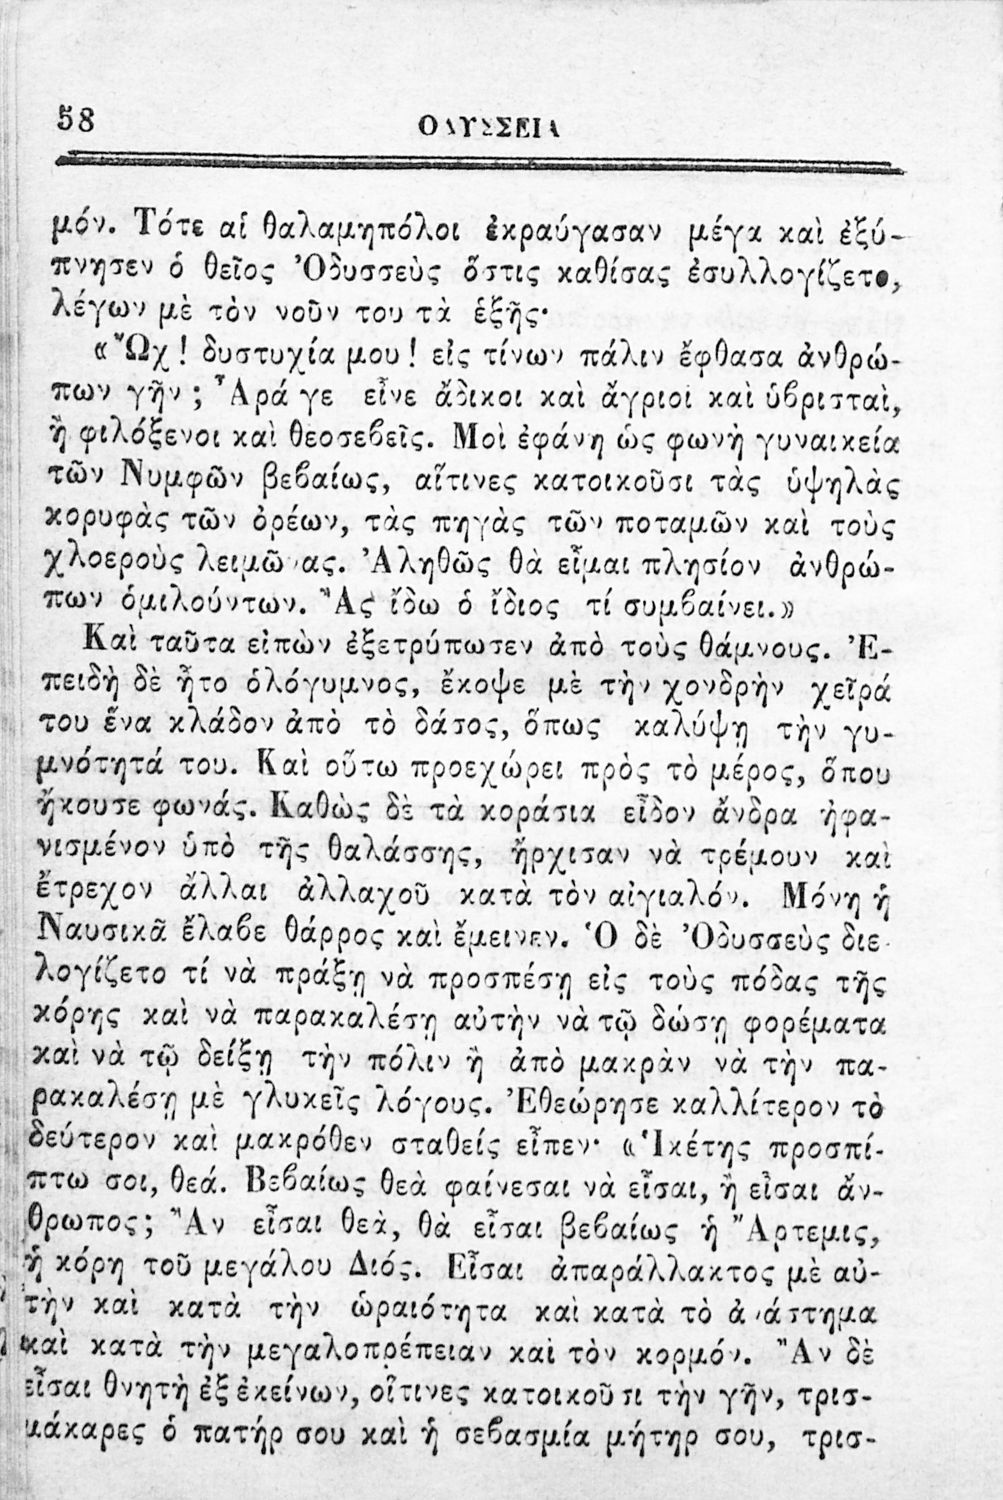 58
ΟΔΥΣΣΕΙΑ
μόν. Τότε αἱ θαλαμηπόλοι ἐκραύγασαν μέγα καὶ ἐξύ-
πνησεν ὁ θεῖος Ὀδυσσεὺς ὅστις καθίσας ἐσυλλογίζετο,
λέγων μὲ τὸν νοῦν του τὰ ἑξῆς·
«Ὢχ! δυστυχία μου! εἰς τίνων πάλιν ἔφθασα ἀνθρώ-
πων γῆν; Ἆρά γε εἶνε ἄδικοι καὶ ἄγριοι καὶ ὑβρισταὶ,
ἢ φιλόξενοι καὶ θεοσεβεῖς. Μοὶ ἐφάνη ὡς φωνὴ γυναικεία
τῶν Νυμφῶν βεβαίως, αἵτινες κατοικοῦσι τὰς ὑψηλὰς
κορυφὰς τῶν ὀρέων, τὰς πηγὰς τῶν ποταμῶν καὶ τοὺς
χλοεροὺς λειμῶνας. Ἀληθῶς θὰ εἶμαι πλησίον ἀνθρώ-
πων ὁμιλούντων. Ἂς ἴδω ὁ ἴδιος τί συμβαίνει.»
Καὶ ταῦτα εἰπὼν ἐξετρύπωσεν ἀπὸ τοὺς θάμνους. Ἐ-
πειδὴ δὲ ἦτο ὁλόγυμνος, ἔκοψε μὲ τὴν χονδρὴν χεῖρά
του ἕνα κλάδον ἀπὸ τὸ δάσος, ὅπως καλύψῃ τὴν γυ-
μνότητά του. Καὶ οὕτω προεχώρει πρὸς τὸ μέρος, ὅπου
ἤκουσε φωνάς. Καθὼς δὲ τὰ κοράσια εἶδον ἄνδρα ἠφα-
νισμένον ὑπὸ τῆς θαλάσσης, ἤρχισαν νὰ τρέμουν καὶ
ἔτρεχον ἄλλαι ἀλλαχοῦ κατὰ τὸν αἰγιαλόν. Μόνη ἡ
Ναυσικᾶ ἔλαβε θάρρος καὶ ἔμεινεν. Ὁ δὲ Ὀδυσσεὺς διε-
λογίζετο τί νὰ πράξῃ νὰ προσπέσῃ εἰς τοὺς πόδας τῆς
κόρης καὶ νὰ παρακαλέσῃ αὐτὴν νὰ τῷ δώσῃ φορέματα
καὶ νὰ τῷ δείξῃ τὴν πόλιν ἢ ἀπὸ μακρὰν νὰ τὴν πα-
ρακαλέσῃ μὲ γλυκεῖς λόγους. Ἐθεώρησε καλλίτερον τὸ
δεύτερον καὶ μακρόθεν σταθείς εἶπεν· «Ἱκέτης προσπί-
πτω σοι, θεά. Βεβαίως θεὰ φαίνεσαι νὰ εἶσαι, ἢ εἶσαι ἄν-
θρωπος; Ἂν εἶσαι θεὰ, θὰ εἶσαι βεβαίως ἡ Ἄρτεμις,
ἡ κόρη τοῦ μεγάλου Διός. Εἶσαι ἀπαράλλακτος μὲ αὐ-
τὴν καὶ κατὰ τὴν ὡραιότητα καὶ κατὰ τὸ ἀνάστημα
καὶ κατὰ τὴν μεγαλοπρέπειαν καὶ τὸν κορμόν. Ἂν δὲ
εἶσαι θνητὴ ἐξ ἐκείνων, οἵτινες κατοικοῦσι τὴν γῆν, τρισ-
μάκαρες ὁ πατήρ σου καὶ ἡ σεβασμία μήτηρ σου, τρισ-